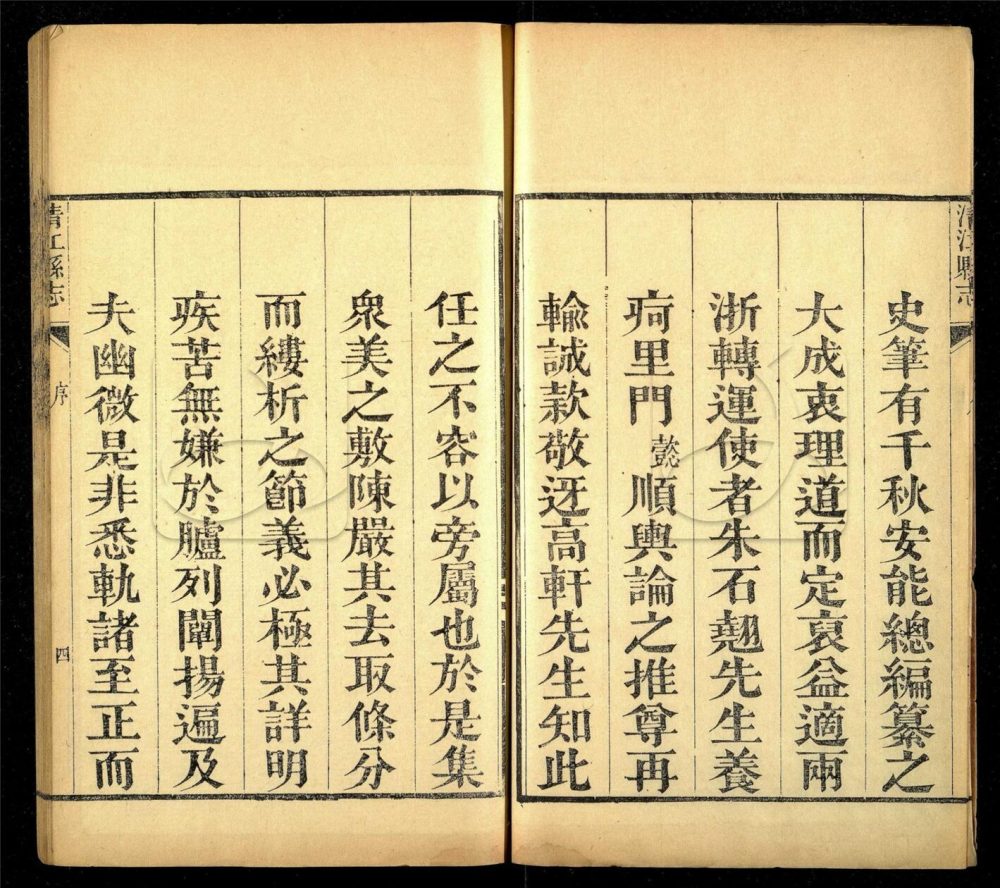 清江縣志
史筆有千秋安能總編纂之
大成衷理道而定裒益適兩
浙轉運使者朱石翹先生養
疴里門懿順輿論之推尊再
輸誠款敬迓高軒先生知此
任之不容以旁屬也於是集
衆美之敷陳嚴其去取條分
而縷析之節義必極其詳明
疾苦無嫌於臚列闡揚遍及
夫幽微是非悉軌諸至正而
清江縣志 序 四